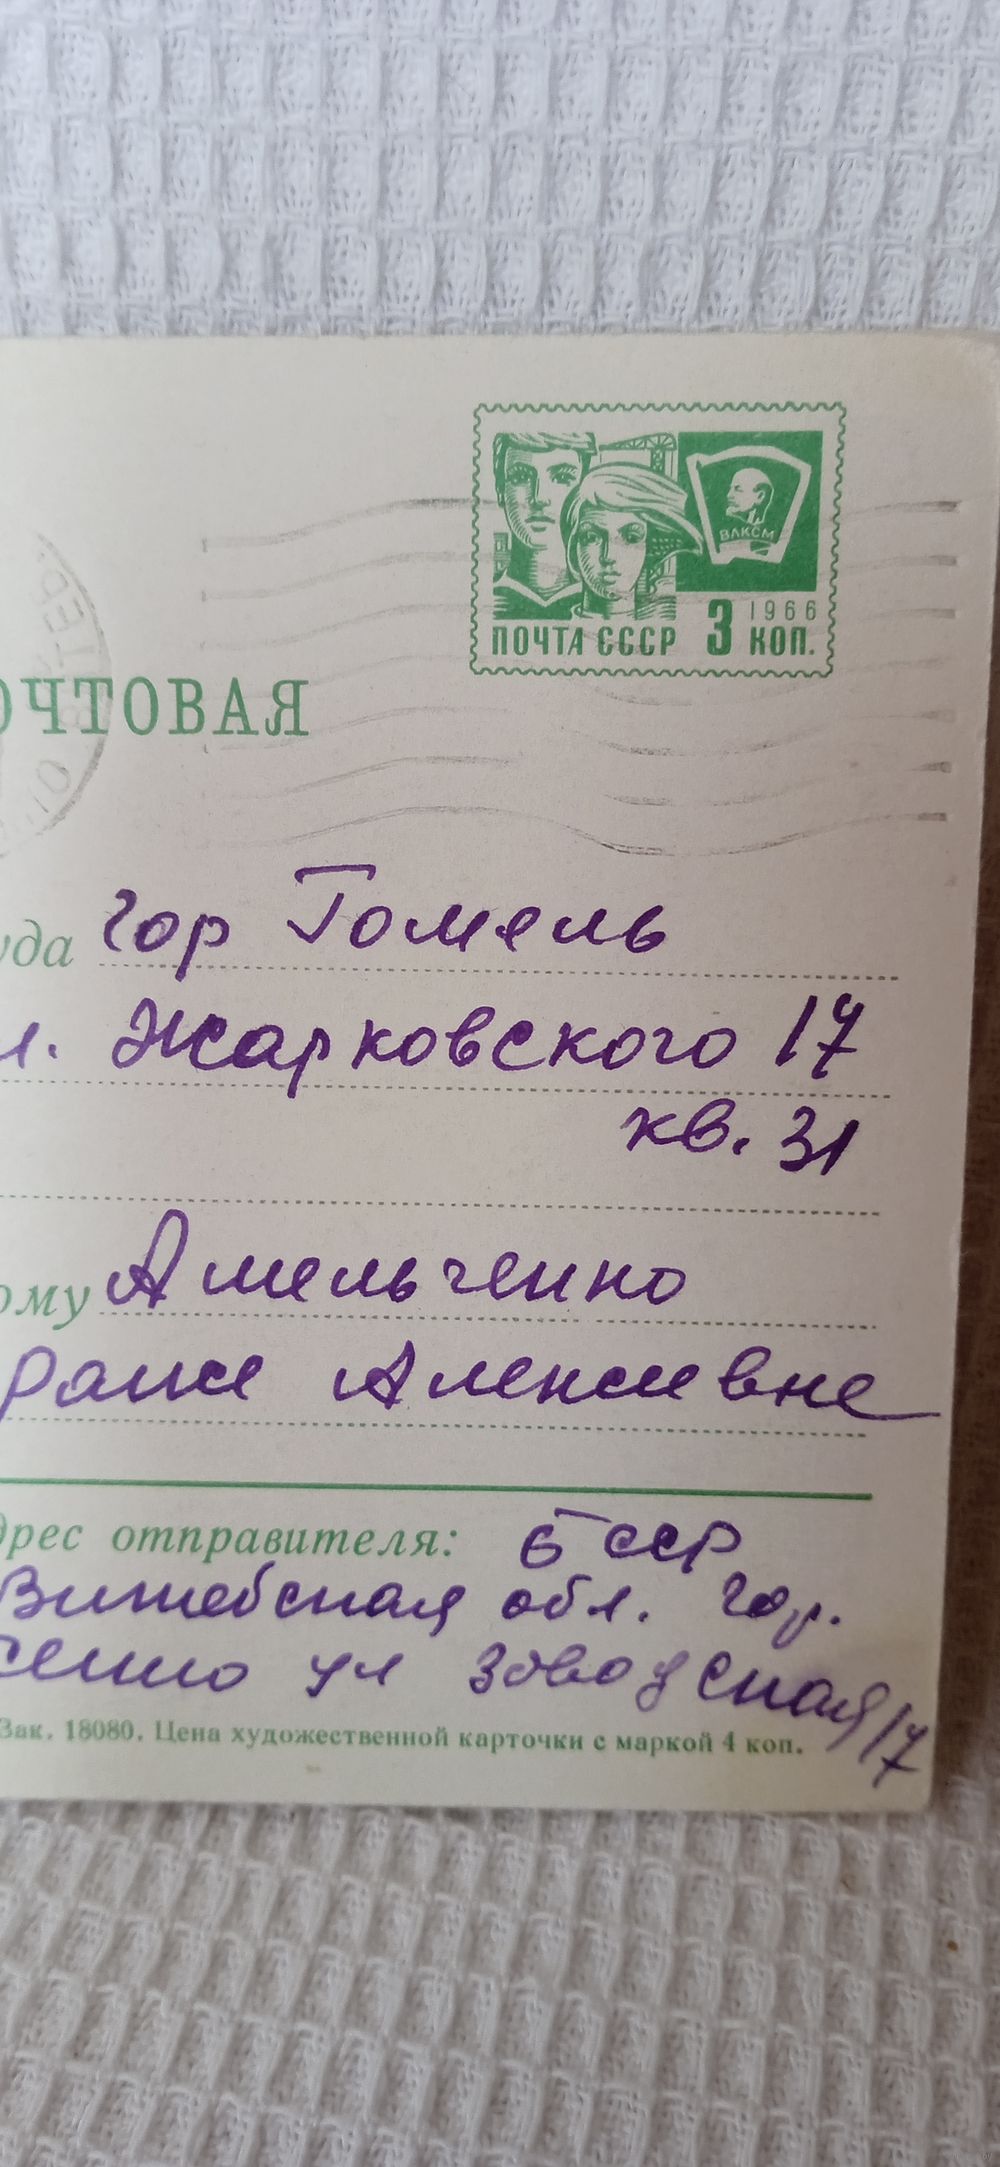 ВЛКСМ
1966
ПОЧТА СССР 3 КОП.
ОЧТОВАЯ
уда гор Гомель
л. Жарковского 17
кв. 31
ому Амельченко
Раисе Алексевне
дрес отправителя: БССР
Витебская обл. гор.
Сенно ул Заводская 17
Зак. 18080. Цена художественной карточки с маркой 4 коп.